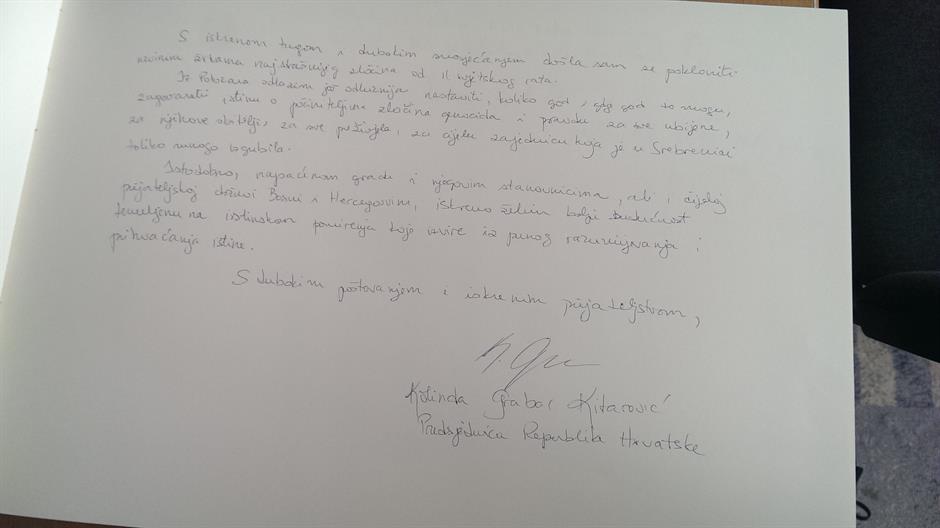 S iskrenom tugom i dubokim suosjećanjem došla sam se pokloniti
nevinim žrtvama najstrašnijeg zločina od II svjetskog rata.
Iz Potočara odlazim još odlučnija nastaviti, koliko god i gdje god to mogu,
zagovarati istinu o počiniteljima zločina genocida i pravdu za sve ubijene,
za njihove obitelji, za sve preživjele, za cijelu zajednicu koja je u Srebrenici
toliko mnogo izgubila.
Istodobno, napaćenom gradu i njegovim stanovnicima, ali i cijeloj
prijateljskoj državi Bosni i Hercegovini, iskreno želim bolju budućnost
temeljenu na istinskom pomirenju koje izvire iz punog razumijevanja i
prihvaćanja istine.
S dubokim poštovanjem i iskrenim prijateljstvom,
Kolinda Grabar Kitarović
Predsjednica Republike Hrvatske